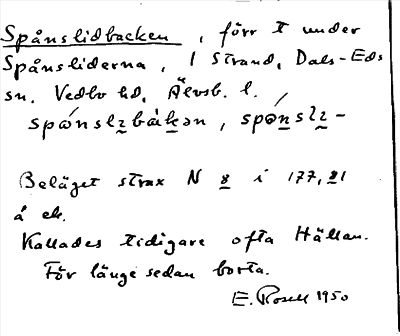 Spånslidbacken, förr t under
Spånsliderna, i Strand, Dals-Eds
sn. Vedbo hd, Älvsb. l.
spånslɩbákən, spånslɩ-
Beläget strax N 8 i 177,81
å ek.
Kallades tidigare ofta Hällan.
För länge sedan borta.
E. Rosell 1950